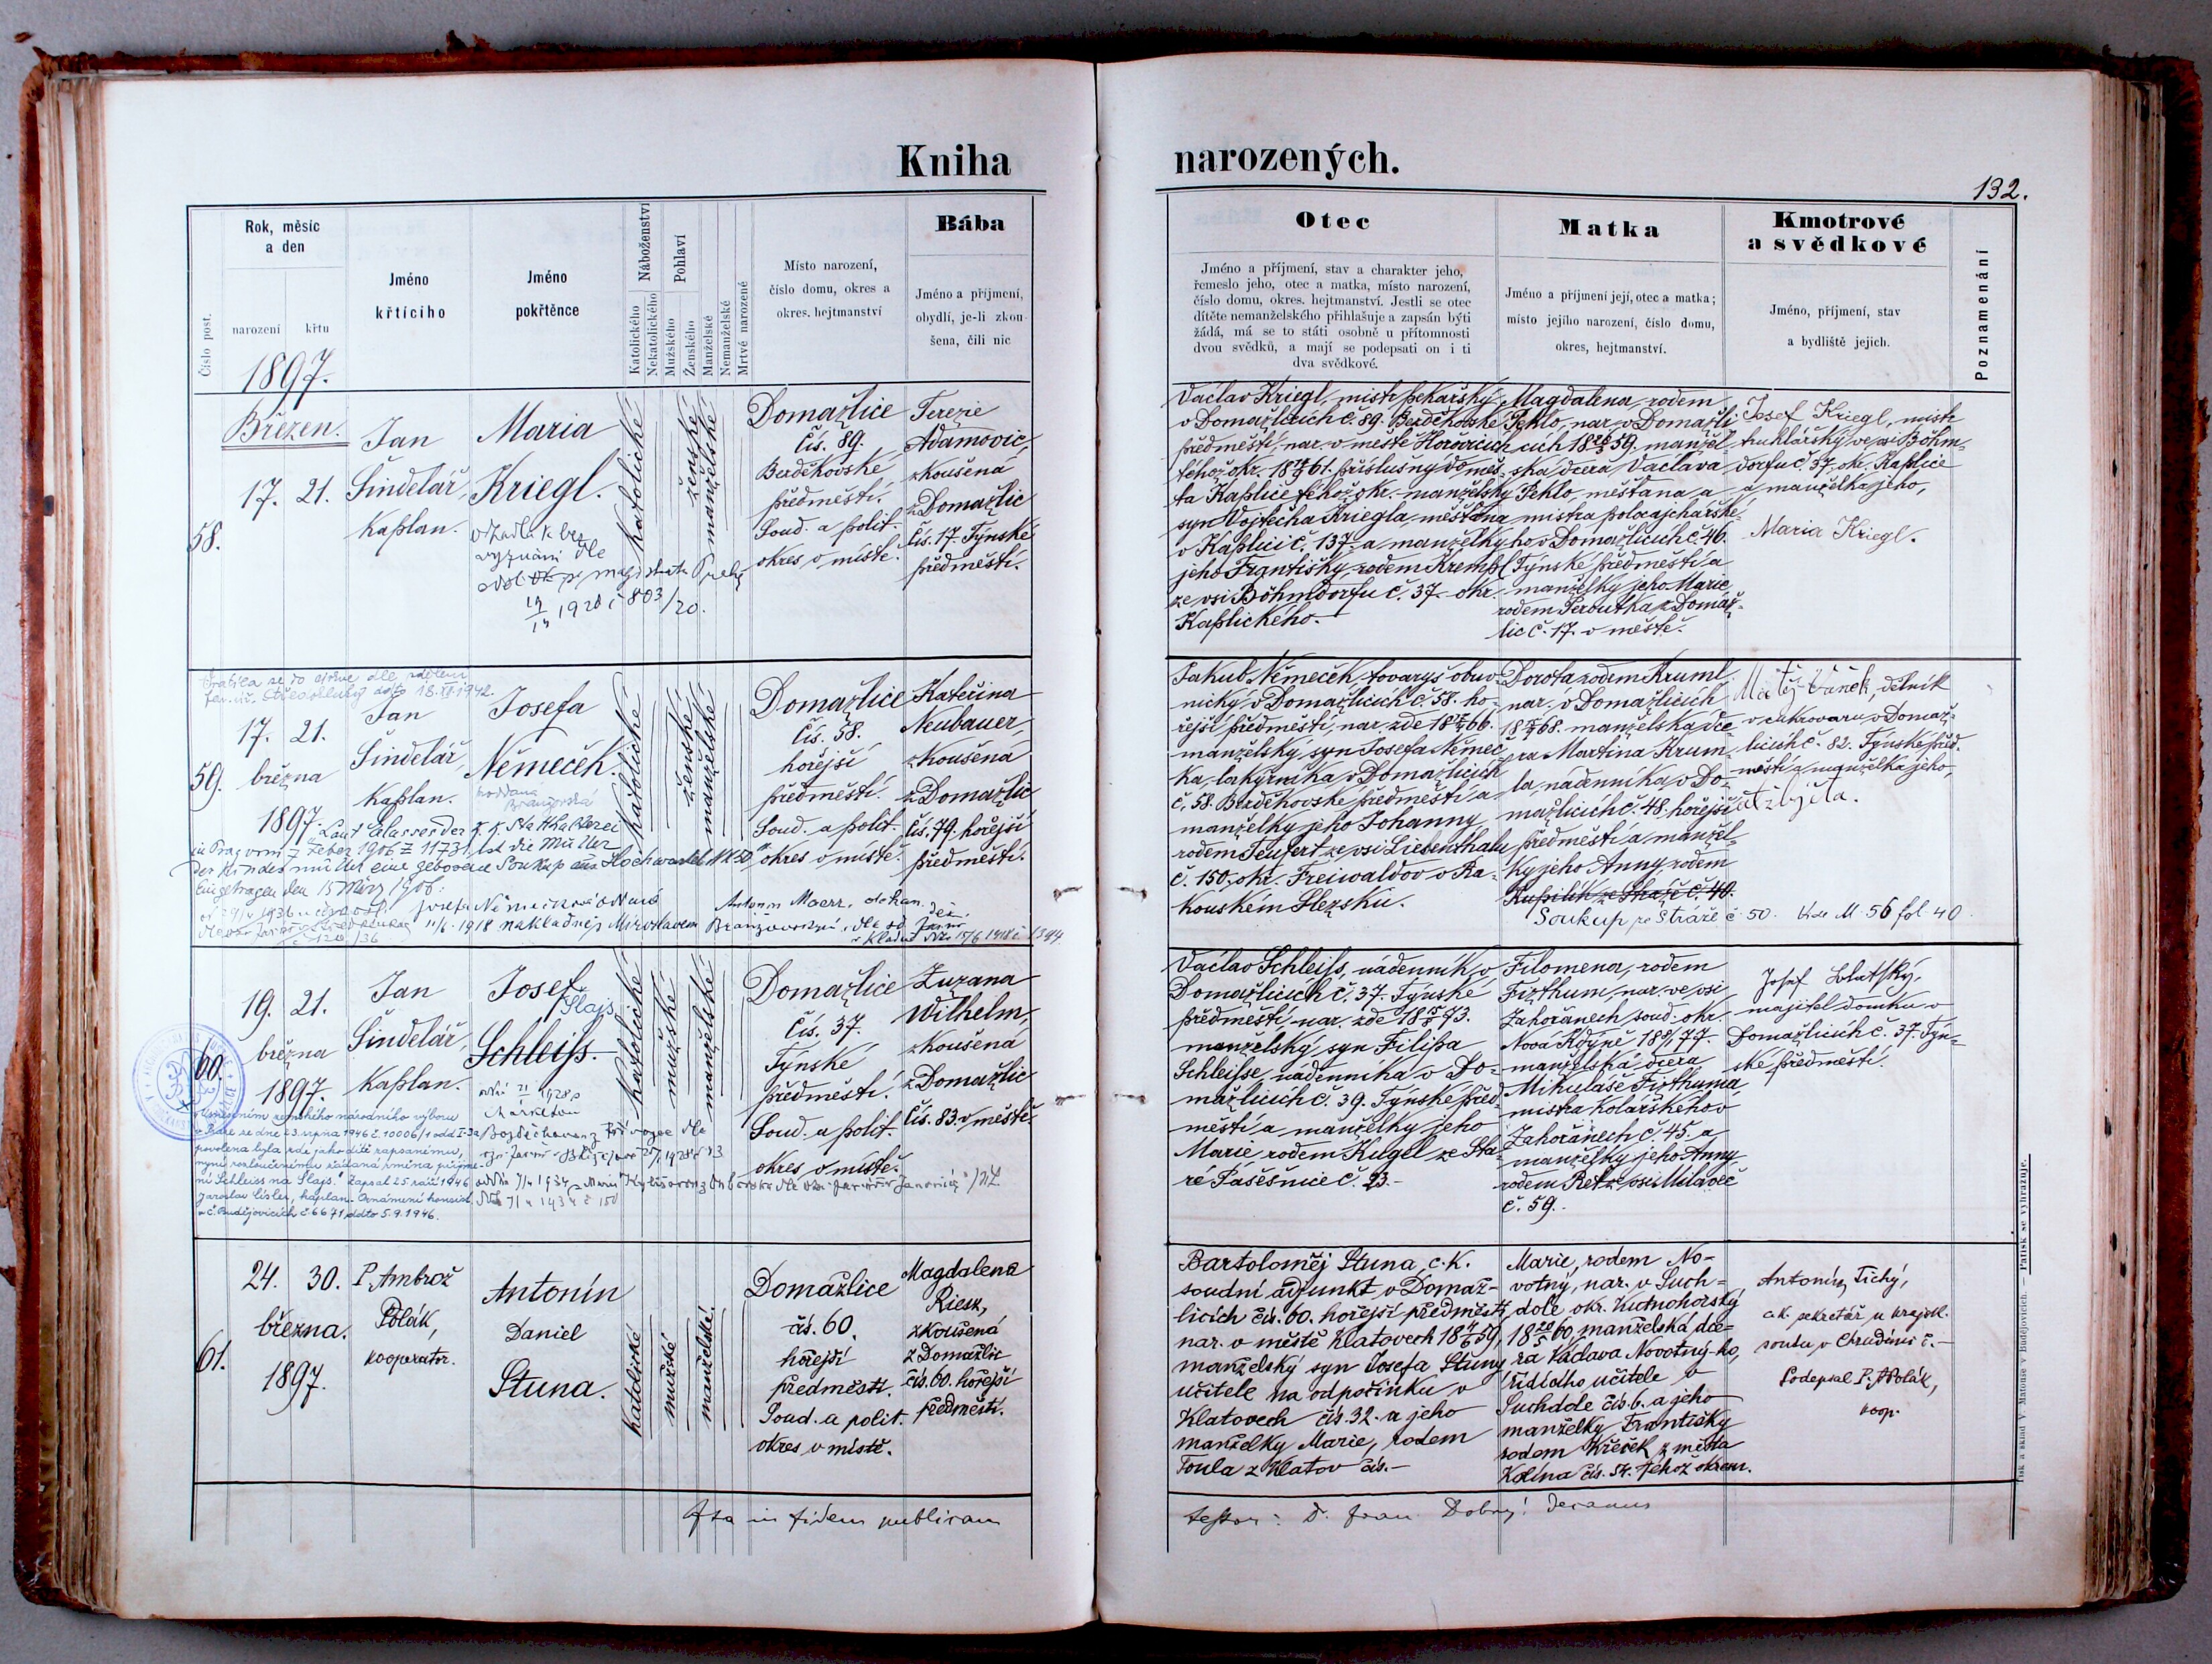 Kniha narozených.
132.
Číslo post.
Rok, měsíc
a den
narození
křtu
Jméno
křtícího
Jméno
pokřtěnce
Náboženství
Katolického
Nekatolického
Pohlaví
Mužského
Ženského
Manželské
Nemanželské
Mrtvé narozené
Místo narození,
číslo domu, okres a
okres. hejtmanství
Bába
Jméno a příjmení,
obydlí, je-li zkou-
šena, čili nic
Otec
Jméno a příjmení, stav a charakter jeho,
řemeslo jeho, otec a matka, místo narození,
číslo domu, okres. hejtmanství. Jestli se otec
dítěte nemanželského přihlašuje a zapsán býti
žádá, má se to státi osobně u přítomnosti
dvou svědků, a mají se podepsati on i ti
dva svědkové.
Matka
Jméno a příjmení její, otec a matka;
místo jejího narození, číslo domu,
okres, hejtmanství.
Kmotrové
a svědkové
Jméno, příjmení, stav
a bydliště jejich.
Poznamenání
1897.
Březen.
58.
17. 21.
Jan
Šindelář,
kaplan.
Maria
Kriegl.
vyznání dle
1920 č 803/20.
katolické
ženské
manželské
Domažlice
čís. 89.
Bezděkovské
předměstí.
Soud. a polit.
okres v místě.
Terezie
Adamovic,
zkoušená
z Domažlic
čís. 17. Týnské
předměstí.
Václav Kriegl, mistr pekařský
v Domažlicích č. 89. Bezděkovské
předměstí, nar. v městě Hořovicích
téhož okr. 18 61. příslušný do měs-
ta Kaplice téhož okr. manželský
syn Vojtěcha Kriegla měšťana
v Kaplici č. 137. a manželky
jeho Františky, rodem Krempl
ze vsi Böhmdorfu č. 37. okr.
Kaplického.
Magdalena, rodem
Pehlo, nar. v Domažli-
cích 18 59. manžel-
ská dcera Václava
Pehlo, měšťana a
mistra
ho v Domažlicích č. 46.
Týnské předměstí a
manželky jeho Marie,
rodem Peroutka z Domaž-
lic č. 17. v městě.
Josef Kriegl, mistr
truhlářský ve vsi Böhm-
dorfu č. 37. okr. Kaplice
a manželka jeho,
Maria Kriegl.
59.
Vrátila se do církve dle sdělení
18.XI.1942.
17. 21.
března
1897.
Jan
Šindelář,
kaplan.
Josefa
Němeček.
provdaná
Branžovská
katolické
ženské
manželské
Domažlice
čís. 58.
hořejší
předměstí.
Soud. a polit.
okres v místě.
Kateřina
Neubauer,
zkoušená
z Domažlic
čís. 79. hořejší
předměstí.
Laut Erlasses der k. k. Statthalterei
in Prag vom 7 Feber 1906 Z 11731 ist die Mutter
der Kindesmutter eine geborene Soukup aus Hochwartl Nr 50
Eingetragen den 15 März 1906:
Antonín Maerz, děkan.
11/6. 1918
Jakub Němeček, tovaryš obuv-
nický v Domažlicích č. 58. ho-
řejší předměstí, nar. zde 18 66.
manželský syn Josefa Němeč-
ka, lakýrníka v Domažlicích
č. 58. Bezděkovské předměstí a
manželky jeho Johanny
rodem Teufert ze vsi Liebenthalu
č. 150. okr. Freiwaldov v Ra-
kouském Slezsku.
Dorota rodem Kruml
nar. v Domažlicích
18 68. manželská dce-
ra Martina Krum-
la, nádenníka v Do-
mažlicích č. 48. hořejší
předměstí a manžel-
ky jeho Anny, rodem
Kupilík ze Stráže č. 40.
Soukup ze Stráže č. 50. M. 56 fol. 40
Matěj Vaněk, dělník
v cukrovaru v Domaž-
licích č. 82. Týnské před-
městí a manželka jeho,
Alžběta.
60.
19. 21.
března
1897.
Jan
Šindelář,
kaplan.
Josef
Šlajs
Schleiss.
katolické
mužské
manželské
Domažlice
čís. 37.
Týnské
předměstí.
Soud. a polit.
okres v místě.
Zuzana
Wilhelm,
zkoušená
z Domažlic
čís. 83. v městě.
Usnesením zemského národního výboru
v Praze ze dne 23. srpna 1946 č. 10006/1 odd I-3a
povolena byla zde jako dítě zapsanému,
nyní rozloučenému žádaná změna příjme-
ní Schleiss na „Šlajs." Zapsal 25 září 1946
Jaroslav Cisler, kaplan. Oznámení konsist.
v Č. Budějovicích č 6671 ddto 5.9.1946.
Václav Schleiss, nádenník v
Domažlicích č. 37. Týnské
předměstí nar. zde 18 73.
manželský syn Filipa
Schleisse, nádenníka v Do-
mažlicích č. 39. Týnské před-
městí a manželky jeho
Marie, rodem Kugel ze Sta-
ré Pášešnice č. 23.
Filomena, rodem
Fizthum, nar. ve vsi
Zahořanech soud. okr.
Nová Kdýně 18 77.
manželská dcera
Mikuláše Fizthuma
mistra kolářského v
Zahořanech č. 45. a
manželky jeho Anny
rodem Ret ze vsi Milaveč
č. 59.
Josef
majitel domku v
Domažlicích č. 37. Týn-
ské předměstí.
61.
24. 30.
března.
1897.
P. Ambrož
Polák,
kooperator.
Antonín
Daniel
Stuna.
katolické
mužské
manželské.
Domažlice
čís. 60.
hořejší
předměstí.
Soud. a polit.
okres v místě.
Magdalena
Riesz,
zkoušená
z Domažlic
čís. 60. hořejší
předměstí.
Bartoloměj Stuna, c. k.
soudní adjunkt v Domaž-
licích čís. 60. hořejší předměstí,
nar. v městě Klatovech 18 59,
manželský syn Josefa Stuny
učitele na odpočinku v
Klatovech čís. 32. a jeho
manželky Marie, rodem
Toula z Klatov čís. –
Marie, rodem No-
votný, nar. v Such-
dole okr. Kutnohorský
18 60, manželská dce-
ra Václava Novotný-ho,
řídícího učitele v
Suchdole čís. 6. a jeho
manželky Františky
rodem Křeček z města
Kolína čís. 54. téhož okresu.
Antonín Tichý,
c.k. sekretář u krajsk.
soudu v Chrudimi č. –
Podepsal P. APolák,
koop.
Ita in fidem publicam
testor: D. Fran. Dobrý: Decanus
Tisk a sklad V. Matouše v Budějovicích. — Patisk se vyhrazuje.